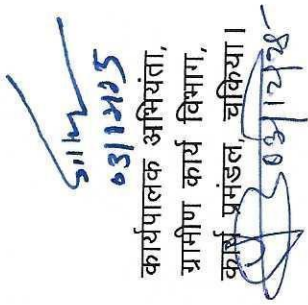 03/12/25
कार्यपालक अभियंता,
ग्रामीण कार्य विभाग,
कार्य प्रमंडल, चकिया।
03/12/25